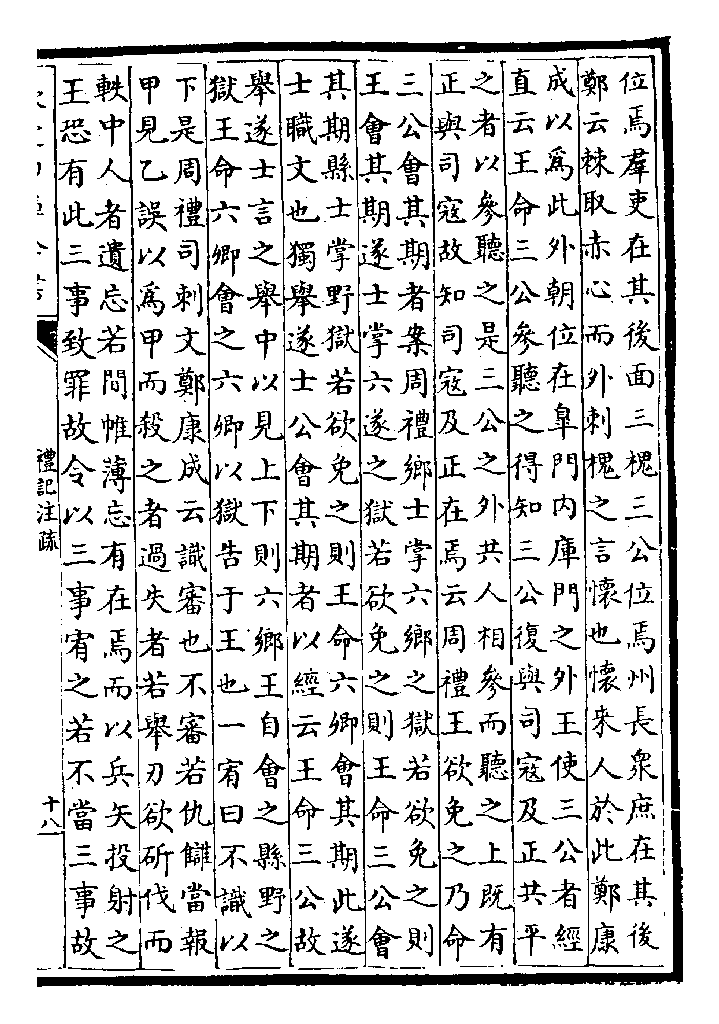 位焉羣吏在其後面三槐三公位焉州長衆庶在其後
鄭云棘取赤心而外刺槐之言懷也懷來人於此鄭康
成以爲此外朝位在臯門内庫門之外王使三公者經
直云王命三公參聽之得知三公復與司寇及正共平
之者以參聽之是三公之外共人相參而聽之上既有
正與司寇故知司寇及正在焉云周禮王欲免之乃命
三公會其期者案周禮鄉士掌六鄉之獄若欲免之則
王會其期遂士掌六遂之獄若欲免之則王命三公會
其期縣士掌野獄若欲免之則王命六卿會其期此遂
士職文也獨舉遂士公會其期者以經云王命三公故
舉遂士言之舉中以見上下則六鄉王自會之縣野之
獄王命六卿會之六卿以獄告于王也一宥曰不識以
下是周禮司刺文鄭康成云識審也不審若仇讎當報
甲見乙誤以爲甲而殺之者過失者若舉刃欲斫伐而
軼中人者遺忘若間帷薄忘有在焉而以兵矢投射之
王恐有此三事致罪故令以三事宥之若不當三事故
禮記注疏
十八